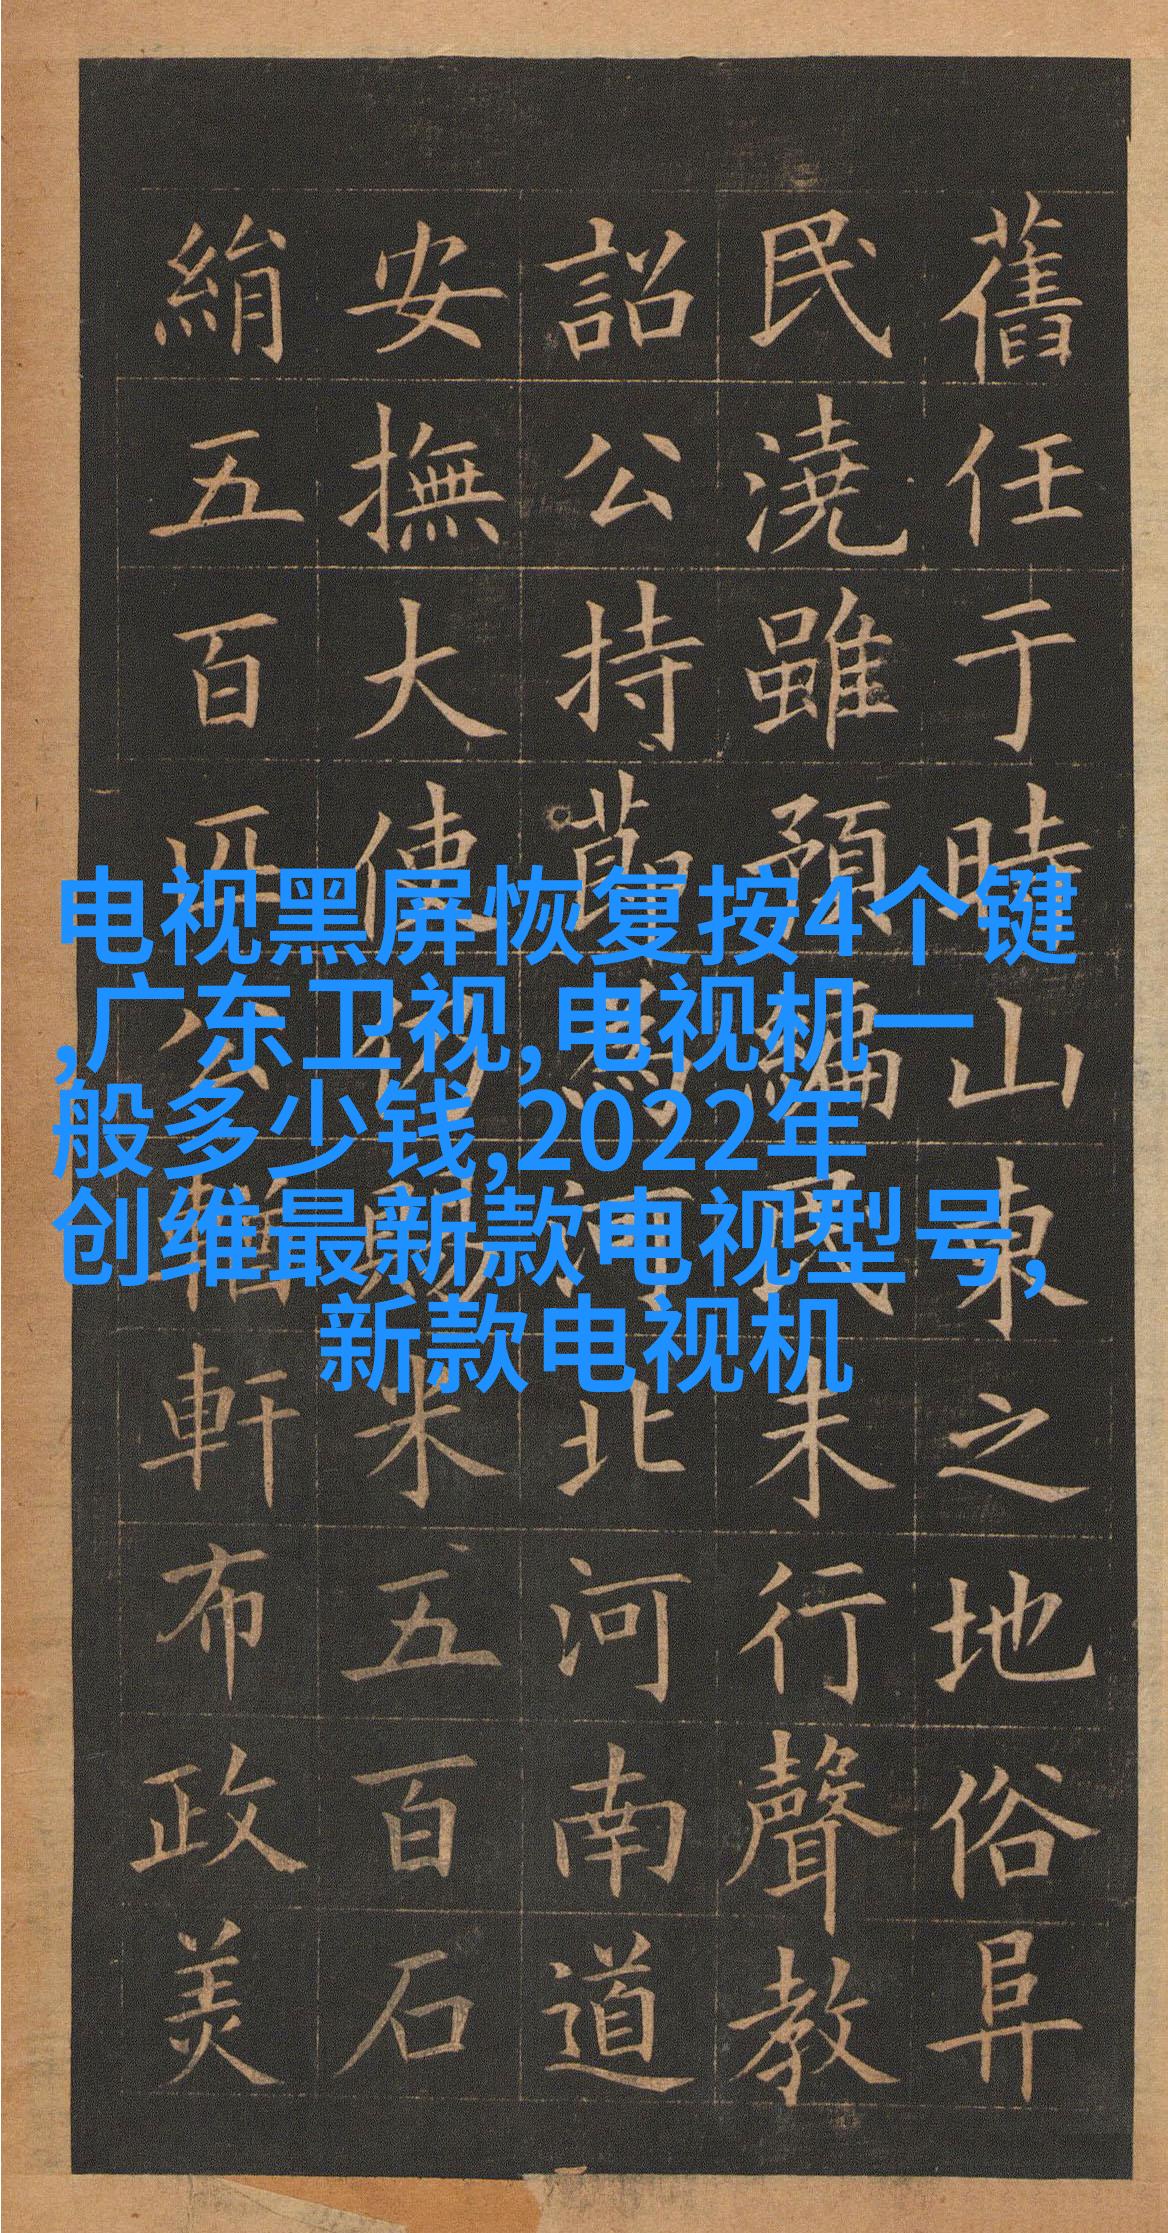 电视黑屏恢复按4个键
,广东卫视,电视机一
般多少钱,2022年
创维最新款电视型号,
新款电视机
舊任于時山東之地俗阜
民澆雖預編民未行聲教
詔公持節為河北河南道
安撫大使仍賜米五百石
絹五百匹公輶軒布政美